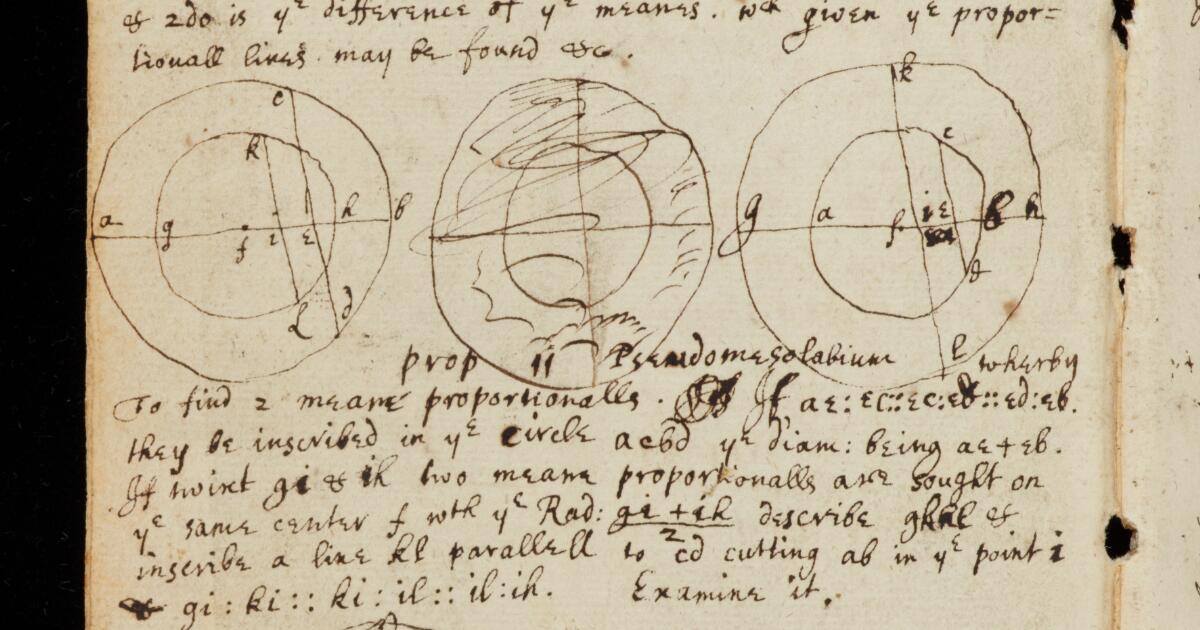 & 2do is yᵉ difference of yᵉ meanes. wᶜʰ given yᵉ propor=
tionall lines may be found &c.
c
k
a
g
f
i
ε
h
b
l
d
k
c
g
a
f
i
ε
b
h
d
l
prop 11 Pseudomesolabium wherby
To find 2 meane proportionalls. If aε : εc :: εc : εd :: εd : εb.
they be inscribed in yᵉ circle acbd yᵉ diam: being aε + εb.
If twixt gi & ih two meane proportionalls are sought on
yᵉ same center f wth yᵉ Rad: gi + ih / 2 describe ghkl &
inscribe a line kl parallell to cd cutting ab in yᵉ point i
& gi : ki :: ki : il :: il : ih. Examine it.